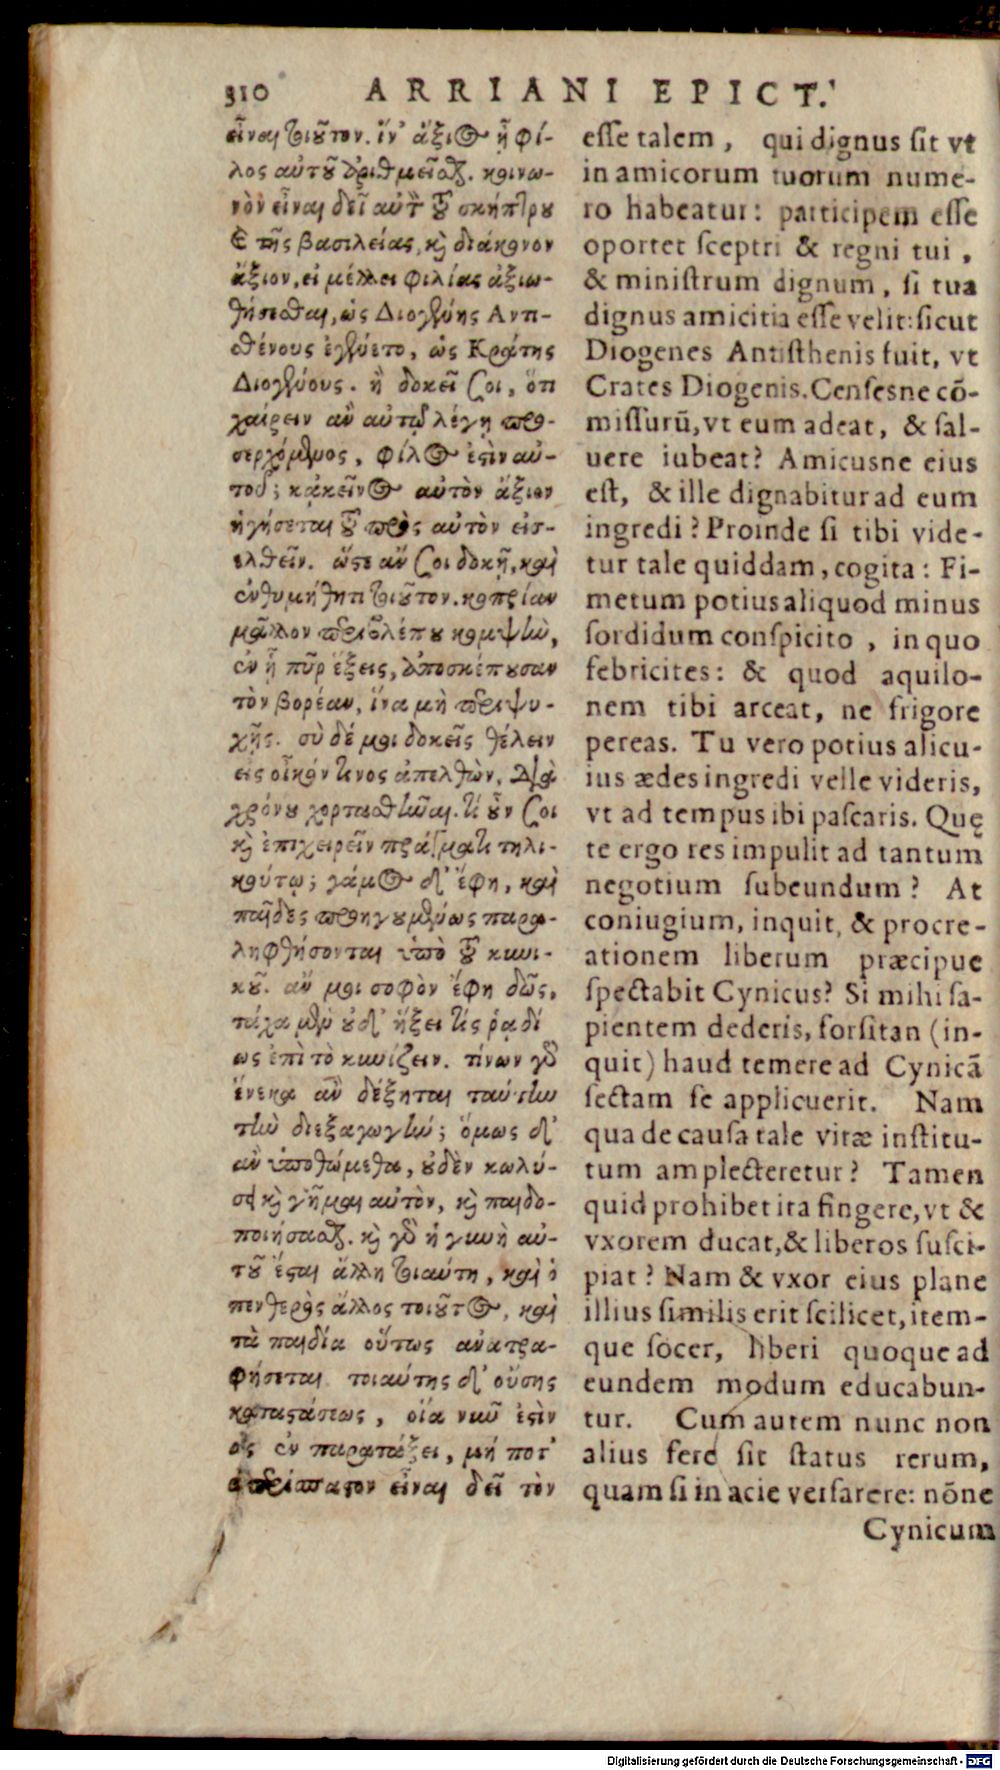 310 ARRIANI EPICT.
εἶναι τοιοῦτον. ἵν' ἄξιος ᾖ φί-
λος αὐτοῦ ἀριθμεῖσθαι. κοινω-
νὸν εἶναι δεῖ αὐτὸν τοῦ σκήπτρου
καὶ τῆς βασιλείας, καὶ διάκονον
ἄξιον, εἰ μέλλει φιλίας ἀξιω-
θήσεσθαι, ὡς Διογένης Ἀντι-
σθένους ἐγένετο, ὡς Κράτης
Διογένους. ἢ δοκεῖ σοι, ὅτι
χαίρειν ἂν αὐτῷ λέγῃ προ-
σερχόμενος, φίλος ἐστὶν αὐ-
τοῦ; κἀκεῖνος αὐτὸν ἄξιον
ἡγήσεται τοῦ πρὸς αὐτὸν εἰσ-
ελθεῖν. ὥστε ἄν σοι δοκῇ, καὶ
ἐνθυμήθητι τοιοῦτον. κοπρίαν
μᾶλλον περιβλέπου κομψὴν,
ἐν ᾗ πῦρ ἕξεις, ἀποσκέπουσαν
τὸν βορέαν, ἵνα μὴ περιψυ-
χῇς. σὺ δέ μοι δοκεῖς θέλειν
εἰς οἶκόν τινος ἀπελθὼν, διὰ
χρόνου χορτασθῆναι. τί οὖν σοι
καὶ ἐπιχειρεῖν πράγματι τηλι-
κούτῳ; γάμος δ' ἔφη, καὶ
παῖδες προηγουμένως παρα-
ληφθήσονται ὑπὸ τοῦ κυνι-
κοῦ. ἄν μοι σοφὸν ἔφη δῶς,
τάχα μὲν οὐδ' ἥξει τίς ῥᾳδί
ως ἐπὶ τὸ κυνίζειν. τίνων γὰρ
ἕνεκα ἂν δέξηται ταύτην
τὴν διεξαγωγήν; ὅμως δ'
ἂν ὑποθώμεθα, οὐδὲν κωλύ-
σει καὶ γῆμαι αὐτὸν, καὶ παιδο-
ποιήσασθαι. καὶ γὰρ ἡ γυνὴ αὐ-
τοῦ ἔσται ἄλλη τοιαύτη, καὶ ὁ
πενθερὸς ἄλλος τοιοῦτος, καὶ
τὰ παιδία οὕτως ἀνατρα-
φήσεται. τοιαύτης δ' οὔσης
καταστάσεως, οἵα νῦν ἐστὶν
ὡς ἐν παρατάξει, μή ποτ'
ἀπερίσπαστον εἶναι δεῖ τὸν
esse talem, qui dignus sit vt
in amicorum tuorum nume-
ro habeatur: participem esse
oportet sceptri & regni tui,
& ministrum dignum, si tua
dignus amicitia esse velit: sicut
Diogenes Antisthenis fuit, vt
Crates Diogenis. Censesne cō-
missurū, vt eum adeat, & sal-
uere iubeat? Amicusne eius
est, & ille dignabitur ad eum
ingredi? Proinde si tibi vide-
tur tale quiddam, cogita: Fi-
metum potius aliquod minus
sordidum conspicito, in quo
febricites: & quod aquilo-
nem tibi arceat, ne frigore
pereas. Tu vero potius alicu-
ius ædes ingredi velle videris,
vt ad tempus ibi pascaris. Quę
te ergo res impulit ad tantum
negotium subeundum? At
coniugium, inquit, & procre-
ationem liberum præcipue
spectabit Cynicus? Si mihi sa-
pientem dederis, forsitan (in-
quit) haud temere ad Cynicā
sectam se applicuerit. Nam
qua de causa tale vitæ institu-
tum amplecteretur? Tamen
quid prohibet ita fingere, vt &
vxorem ducat, & liberos susci-
piat? Nam & vxor eius plane
illius similis erit scilicet, item-
que socer, liberi quoque ad
eundem modum educabun-
tur. Cum autem nunc non
alius fere sit status rerum,
quam si in acie versarere: nōne
Cynicum
Digitalisierung gefördert durch die Deutsche Forschungsgemeinschaft - DFG